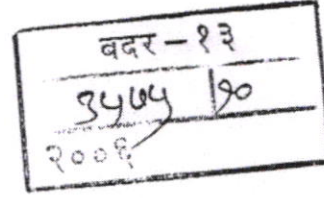 वदर - १३
३५७५ | १०
२००६